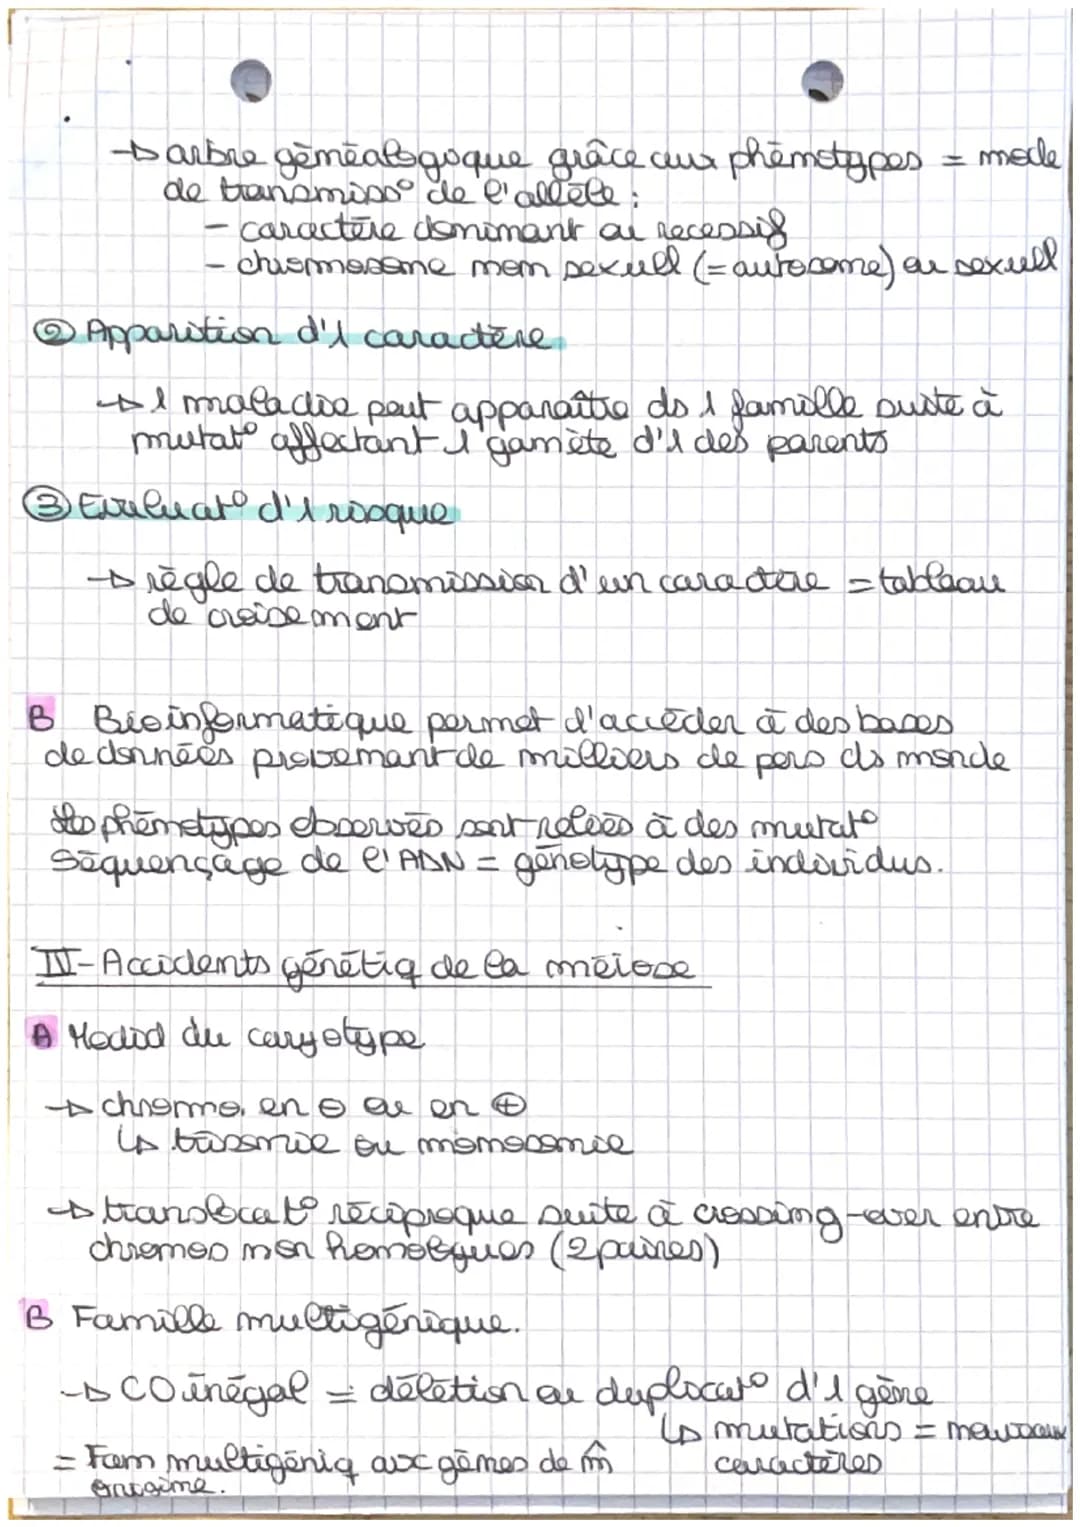 → arbre généalogique grâce aux phénotypes = mode
de transmiss° de l'allèle :
- caractère dominant ou recessif
- chromosome non sexuel (= autosome) ou sexuel
② Apparition d'1 caractère
→ 1 maladie peut apparaître ds 1 famille suite à
mutat° affectant 1 gamète d'1 des parents
③ Evaluat° d'1 risque
→ règle de transmission d'un caractère = tableau
de croisement
B Bioinformatique permet d'accéder à des bases
de données provenant de milliers de pers ds monde
les phénotypes observés sont reliés à des mutat°
Séquençage de l'ADN = génotype des individus.
IV - Accidents génétiq de la méiose
A Modif du caryotype
→ chromo. en ⊖ ou en ⊕
↳ trisomie ou monosomie
→ translocat° réciproque suite à crossing-over entre
chromos non homologues (2 paires)
B Famille multigénique.
→ CO inégal = délétion ou duplicat° d'1 gène
↳ mutations = nouveaux
caractères
= Fam multigéniq avc gènes de m̂
origine.